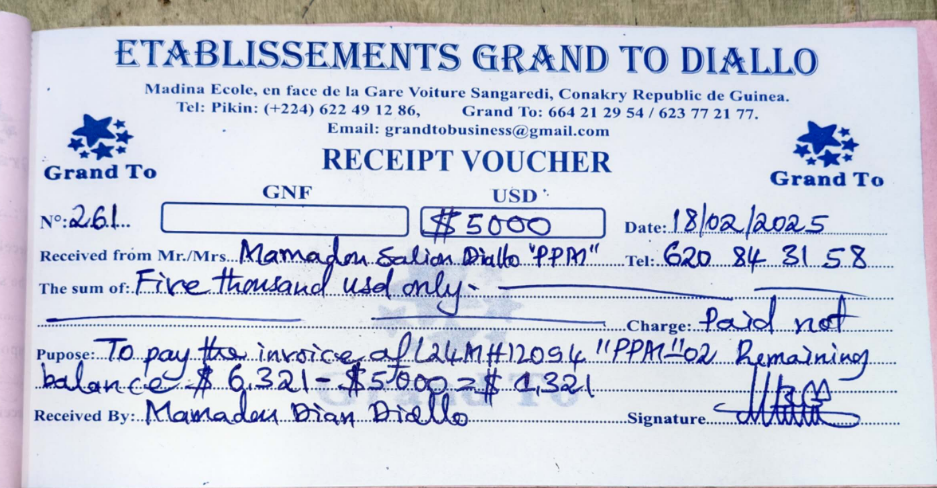 ETABLISSEMENTS GRAND TO DIALLO
Madina Ecole, en face de la Gare Voiture Sangaredi, Conakry Republic de Guinea.
Tel: Pikin: (+224) 622 49 12 86, Grand To: 664 21 29 54 / 623 77 21 77.
Email: grandtobusiness@gmail.com
Grand To RECEIPT VOUCHER Grand To
GNF USD
N°: 261 $ 5000 Date: 18/02/2025
Received from Mr./Mrs. Mamadou Saliou Diallo "PPM" Tel: 620 84 31 58
The sum of: Five thousand usd only -
Charge: Paid not
Pupose: To pay the invoice of L24MH12094 "PPM"02 Remaining
balance $ 6,321 - $5000 = $ 1,321
Grand To
Received By: Mamadou Dian Diallo Signature